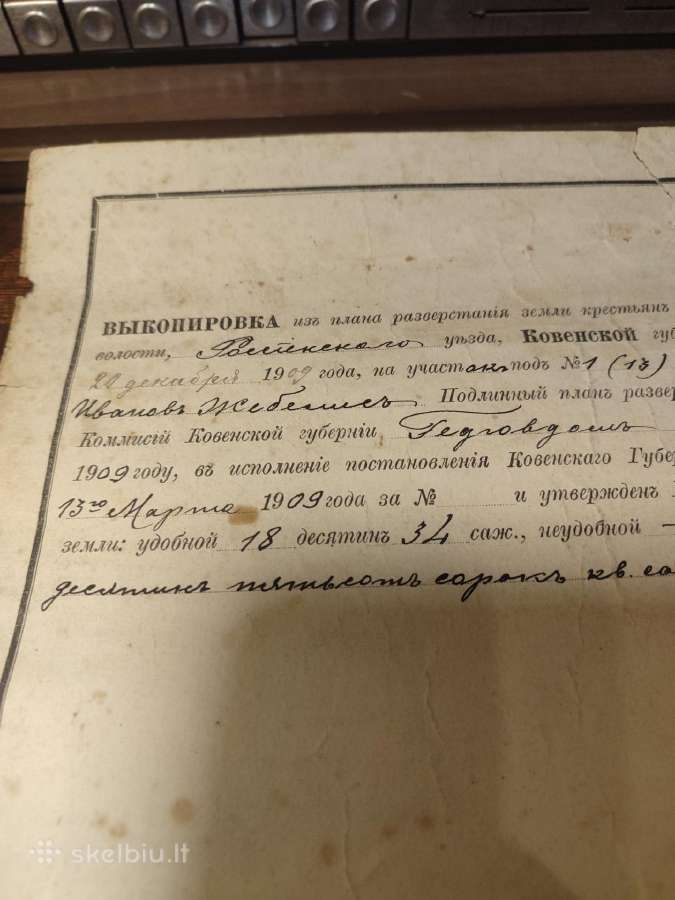 ВЫКОПИРОВКА изъ плана разверстанія земли крестьянъ
волости, уѣзда, Ковенской губ
22 декабря 1909 года, на участокъ подъ №1 (13)
Ивановъ Жебелисъ Подлинный планъ развер
Коммисій Ковенской губерніи
1909 году, въ исполненіе постановленія Ковенскаго Губер
13го Марта 1909 года за № и утвержден
земли: удобной 18 десятин 34 саж., неудобной —
десятинъ пятьсотъ сорокъ кв. са
skelbiu.lt